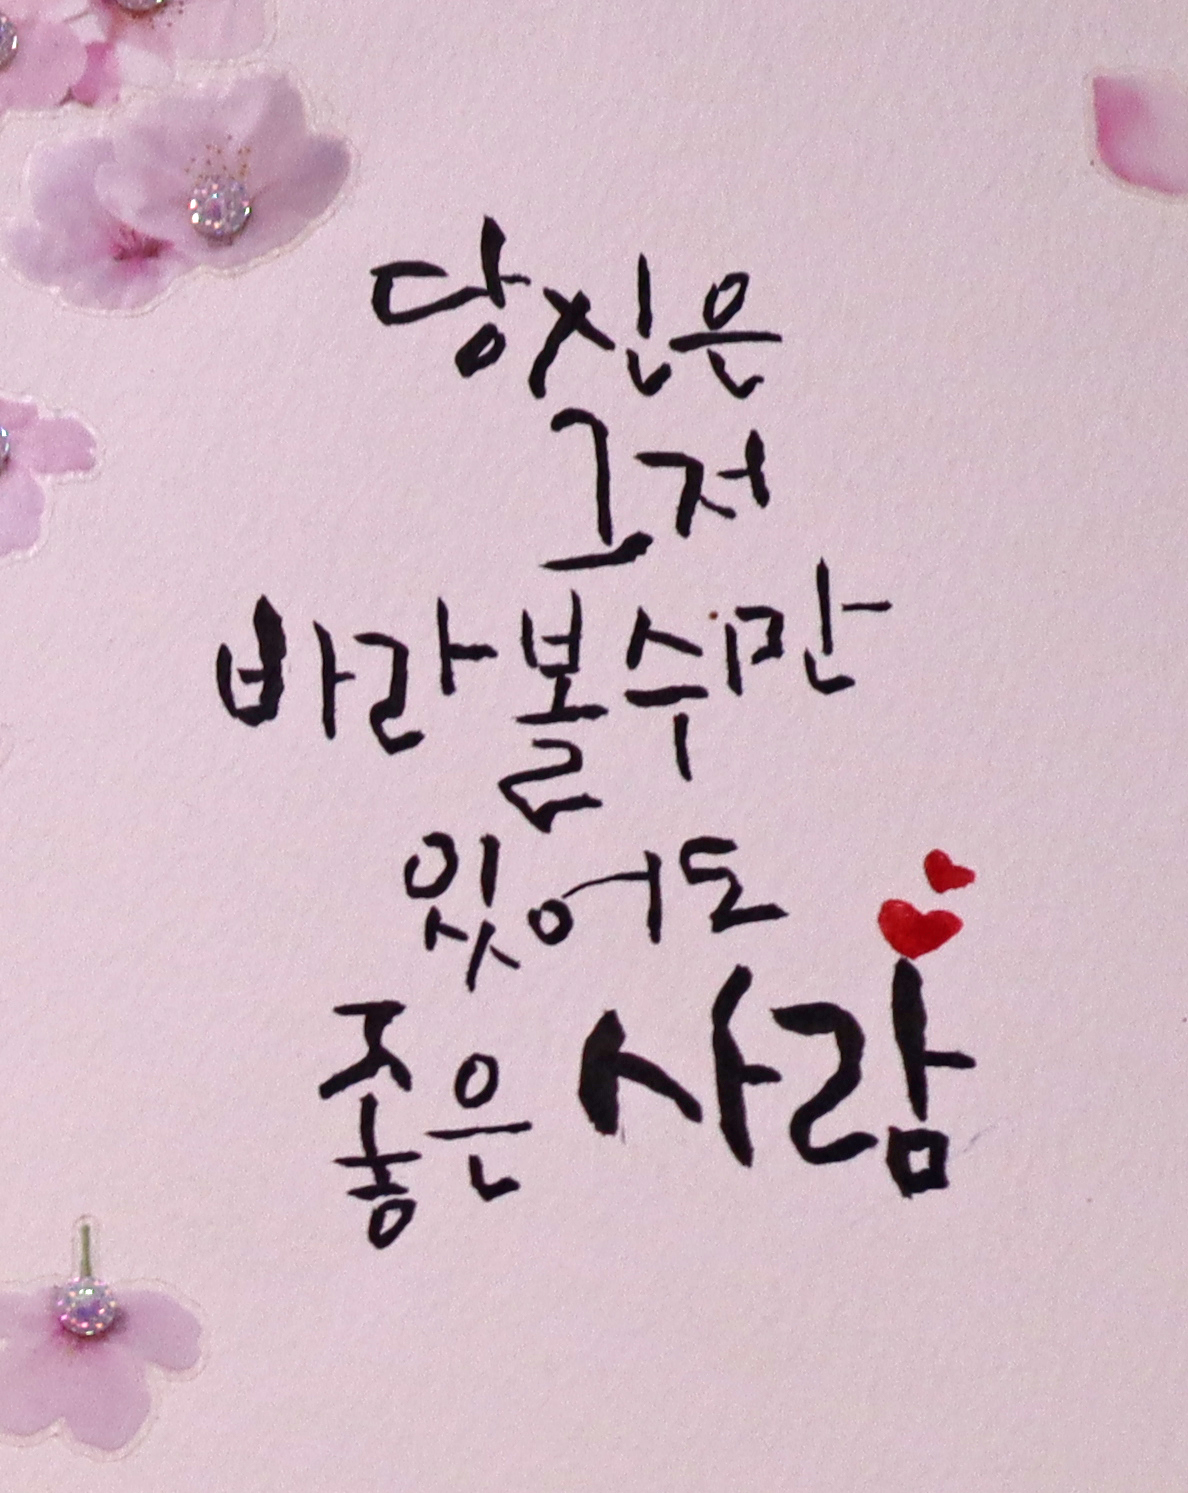 당신은
그저
바라볼수만
있어도
좋은 사람